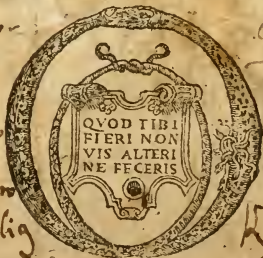 QVOD TIBI
FIERI NON
VIS ALTERI
NE FECERIS
lig